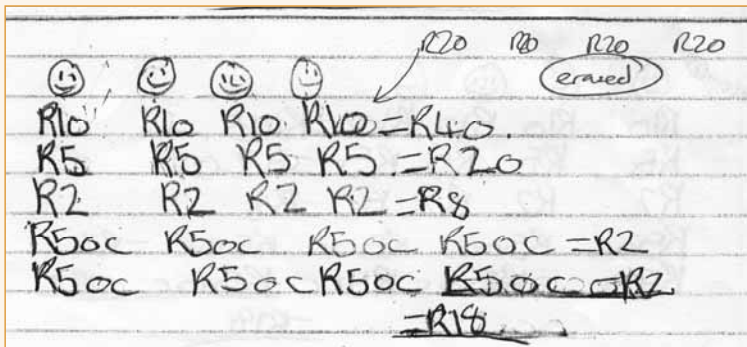 R20 R20 R20 R20
erased
R10 R10 R10 R10=R40.
R5 R5 R5 R5=R20
R2 R2 R2 R2=R8
R50c R50c R50c R50c=R2
R50c R50c R50c R50c=R2
=R18